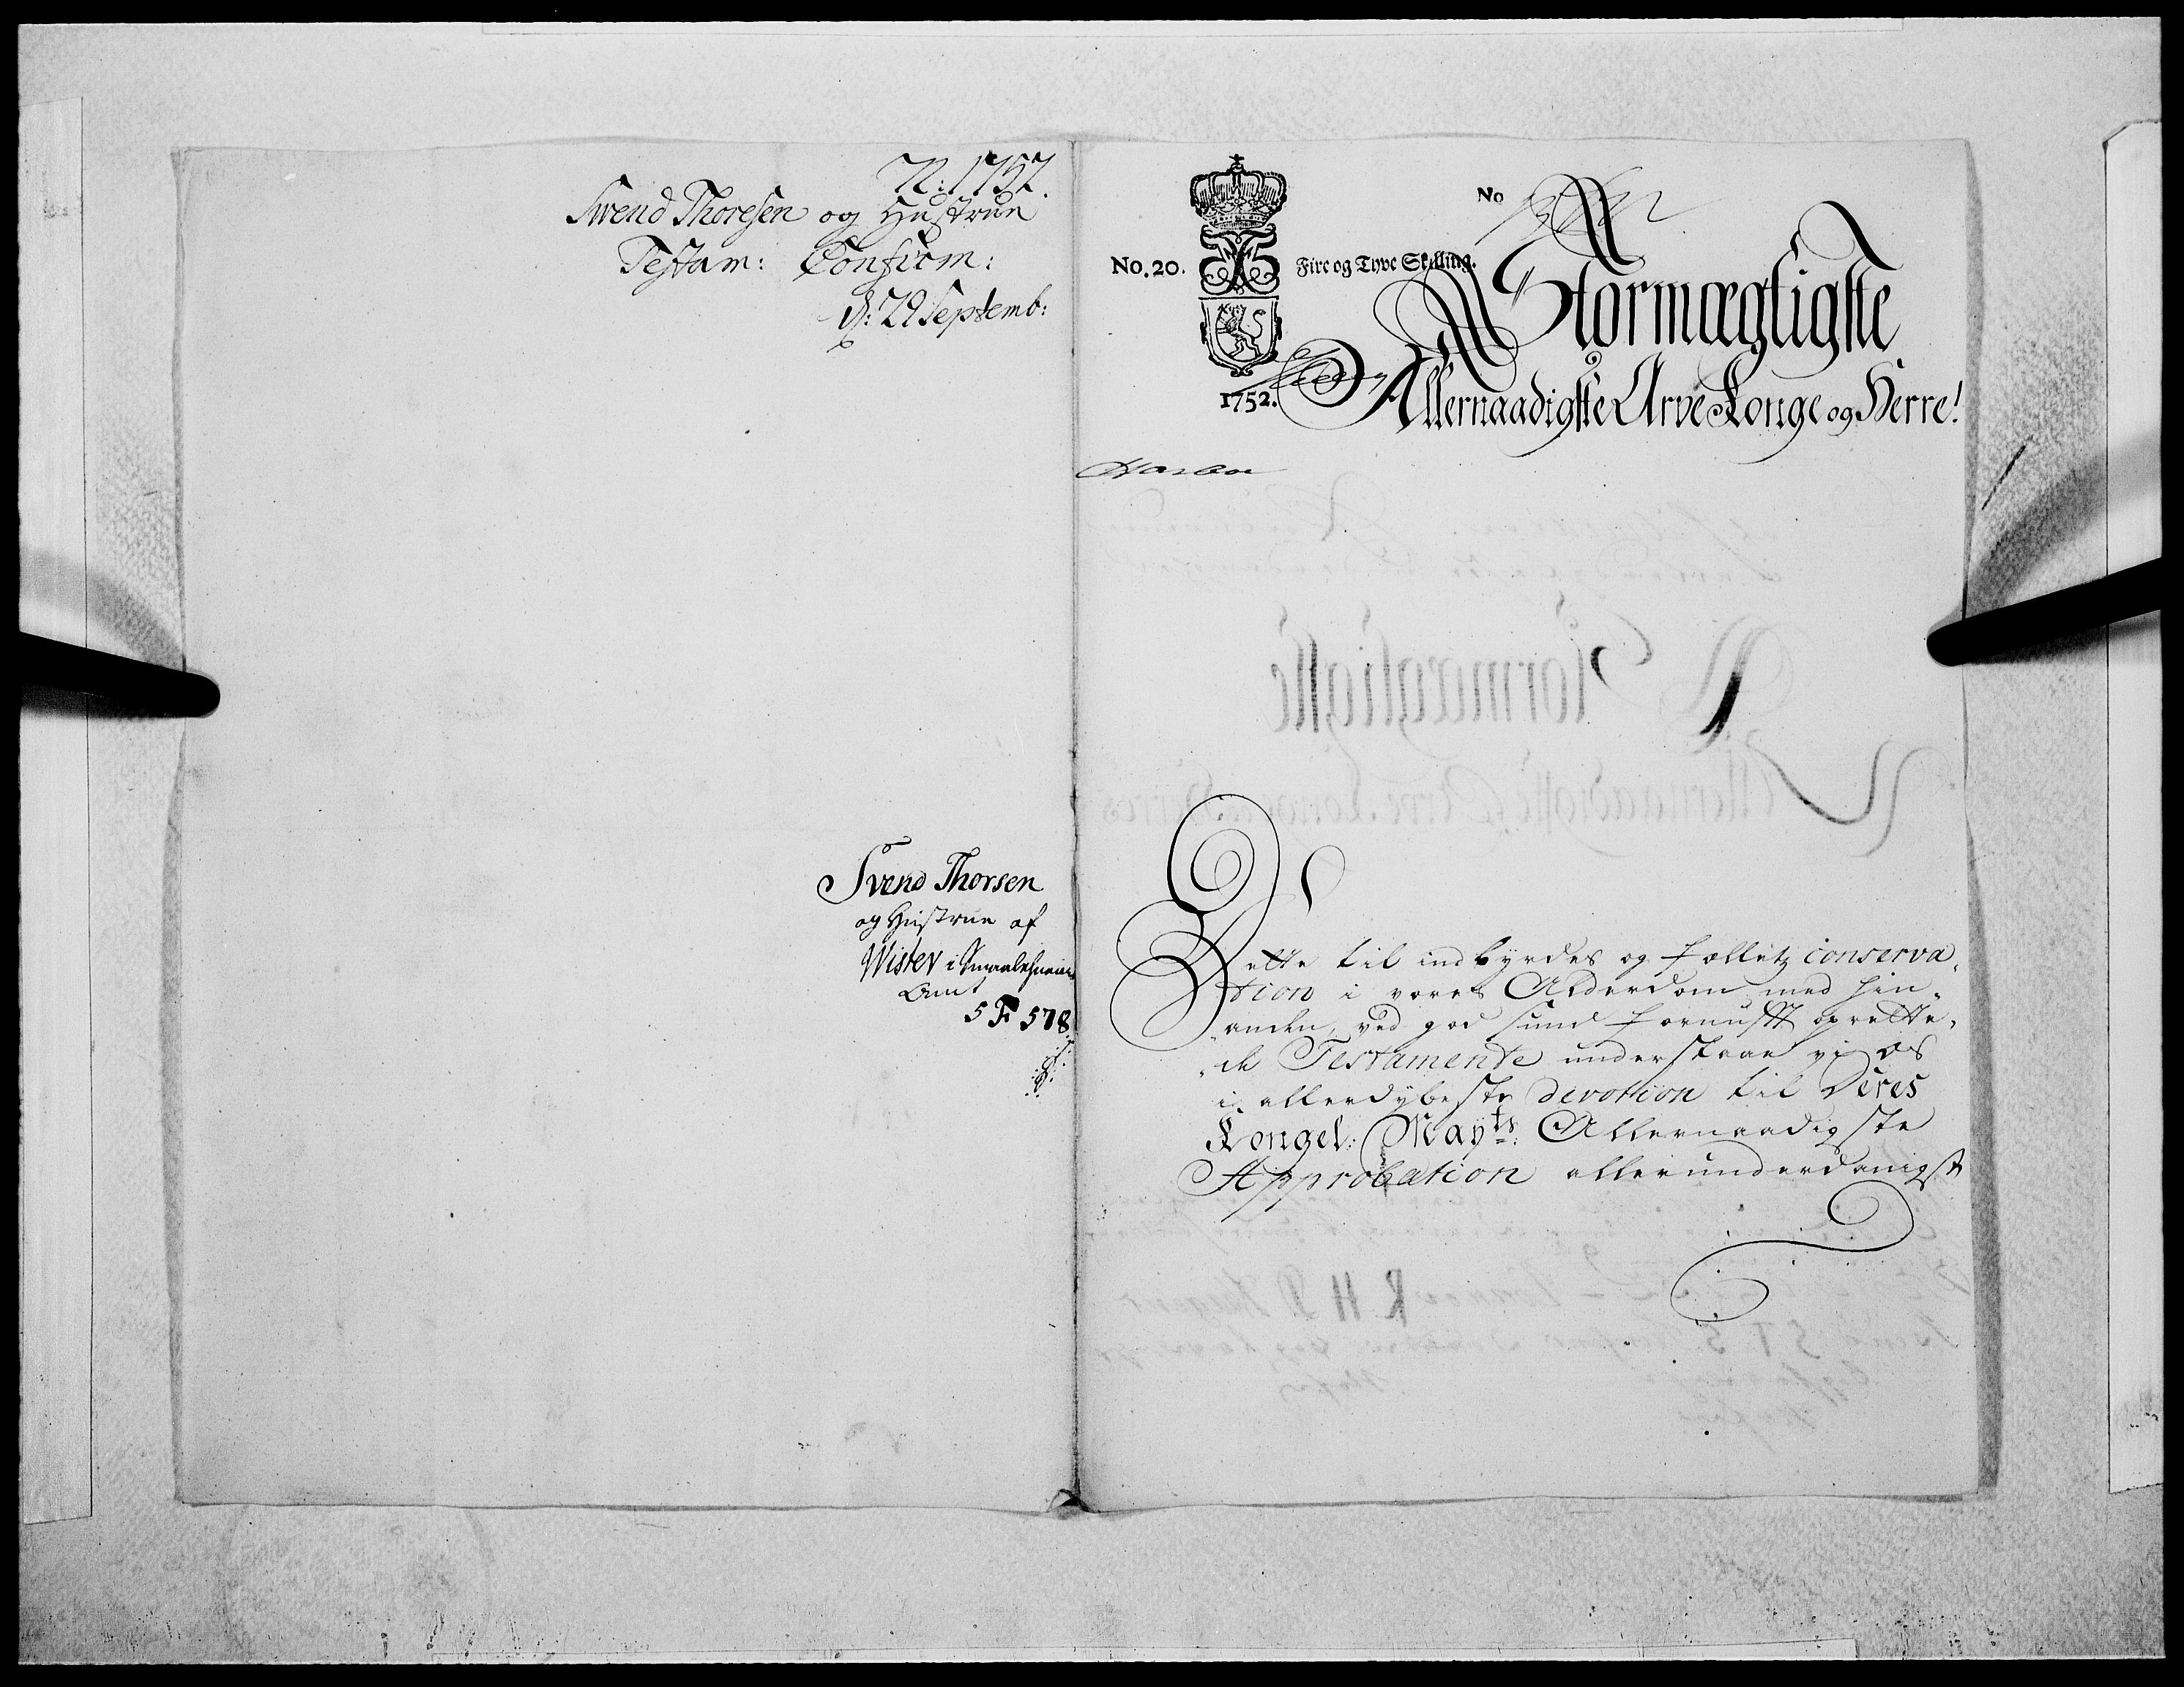 N: 1752.
Swend Thoresen og Hustrue
Testam: Confirm:
d: 29 Septemb:
Svend Thorsen
og Hustrue af
Wister i Smaalehnenes
Amt
5 F 578
No
No. 20.
Fire og Tyve Skilling.
1752.
Stormægtigste
Allernaadigste Arve Konge og Herre!
Dette til indbyrdes og fælletz conserva,
tion i vores Alderdom med hin„
„anden, ved god sund fornufft oprette„
„de Testamente understaae vi os
i allerdybeste devotion til Deres
Kongel: Mayts: Allernaadigste
Approbation allerunderdanigst